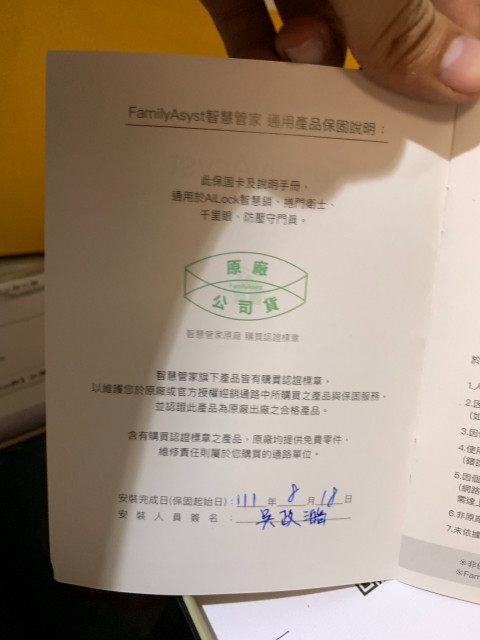 FamilyAsyst智慧管家 通用產品保固說明：
此保固卡及說明手冊，
適用於AiLock智慧鎖、捲門衛士、
千里眼、防壓守門員。
原廠
公司貨
智慧管家原廠 購買認證標章
智慧管家旗下產品皆有購買認證標章，
以維護您於原廠或官方授權經銷通路中所購買之產品與保固服務，
並認證此產品為原廠出廠之合格產品。
含有購買認證標章之產品，原廠均提供免費零件，
維修責任則屬於您購買的通路單位。
安裝完成日(保固起始日)：111年8月18日
安裝人員簽名：吳政
於
1.人
2.因
(如
3.因
4.使用
5.因個
(網路
需達
6.非原廠
7.未依據
＊非保
＊Fam